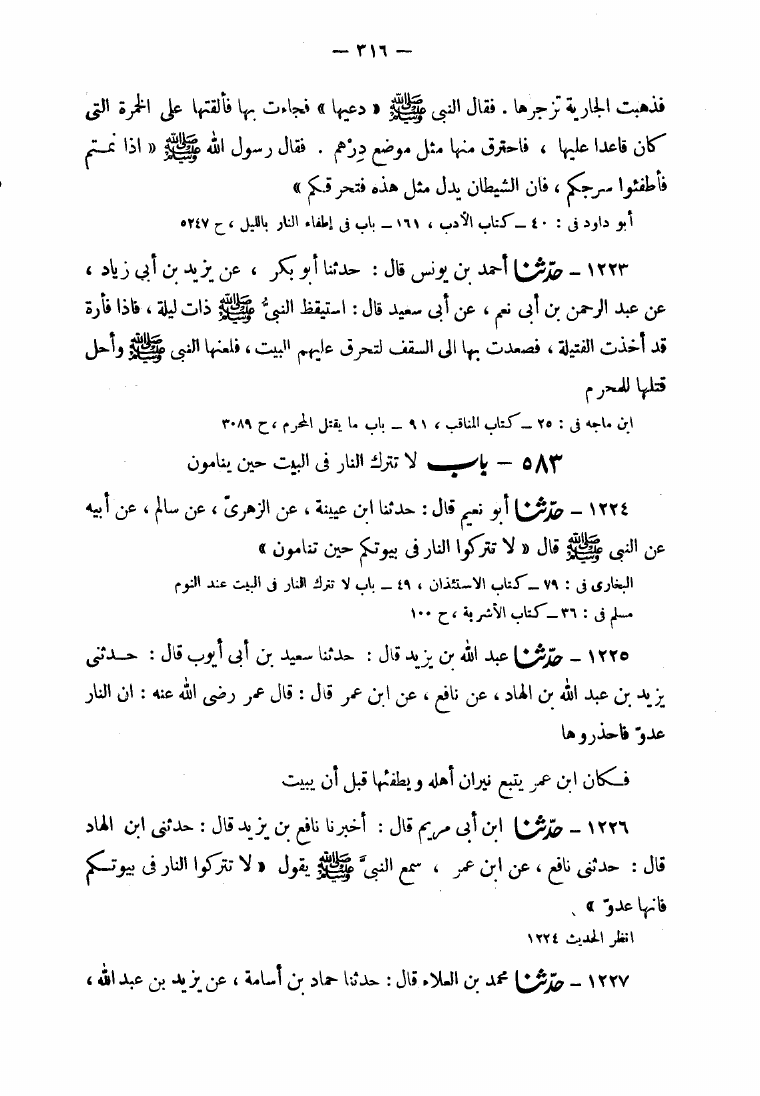 — ٣١٦ —
فذهبت الجارية تزجرها . فقال النبى ﷺ « دعيها » فجاءت بها فألقتها على الخمرة التى
كان قاعدا عليها ، فاحترق منها مثل موضع دِرْهم . فقال رسول الله ﷺ « اذا نمتم
فأطفئوا سرجكم ، فان الشيطان يدل مثل هذه فتحرقكم »
أبو داود فى : ٤٠ – كتاب الأدب ، ١٦١ – باب فى إطفاء النار بالليل ، ح ٥٢٤٧
١٢٢٣ – حدّثنا أحمد بن يونس قال : حدثنا أبو بكر ، عن يزيد بن أبي زياد ،
عن عبد الرحمن بن أبى نعم ، عن أبى سعيد قال : استيقظ النبىُّ ﷺ ذات ليلة ، فاذا فأرة
قد أخذت الفتيلة ، فصعدت بها الى السقف لتحرق عليهم البيت ، فلعنها النبى ﷺ وأحل
قتلها للمحرم
ابن ماجه فى : ٢٥ – كتاب المناقب ، ٩١ – باب ما يقتل المحرم ، ح ٣٠٨٩
٥٨٣ – باب لا تترك النار فى البيت حين ينامون
١٢٢٤ – حدّثنا أبو نعيم قال : حدثنا ابن عيينة ، عن الزهرىّ ، عن سالم ، عن أبيه
عن النبى ﷺ قال « لا تتركوا النار فى بيوتكم حين تنامون »
البخارى فى : ٧٩ – كتاب الاستئذان ، ٤٩ – باب لا تترك النار فى البيت عند النوم
مسلم فى : ٣٦ – كتاب الأشربة ، ح ١٠٠
١٢٢٥ – حدّثنا عبد الله بن يزيد قال : حدثنا سعيد بن أبى أيوب قال : حدثنى
يزيد بن عبد الله بن الهاد ، عن نافع ، عن ابن عمر قال : قال عمر رضى الله عنه : ان النار
عدوّ فاحذروها
فكان ابن عمر يتبع نيران أهله ويطفئها قبل أن يبيت
١٢٢٦ – حدّثنا ابن أبى مريم قال : أخبرنا نافع بن يزيد قال : حدثنى ابن الهاد
قال : حدثنى نافع ، عن ابن عمر ، سمع النبىَّ ﷺ يقول « لا تتركوا النار فى بيوتكم
فانها عدوّ »
انظر الحديث ١٢٢٤
١٢٢٧ – حدّثنا محمد بن العلاء قال : حدثنا حماد بن أسامة ، عن يزيد بن عبد الله ،